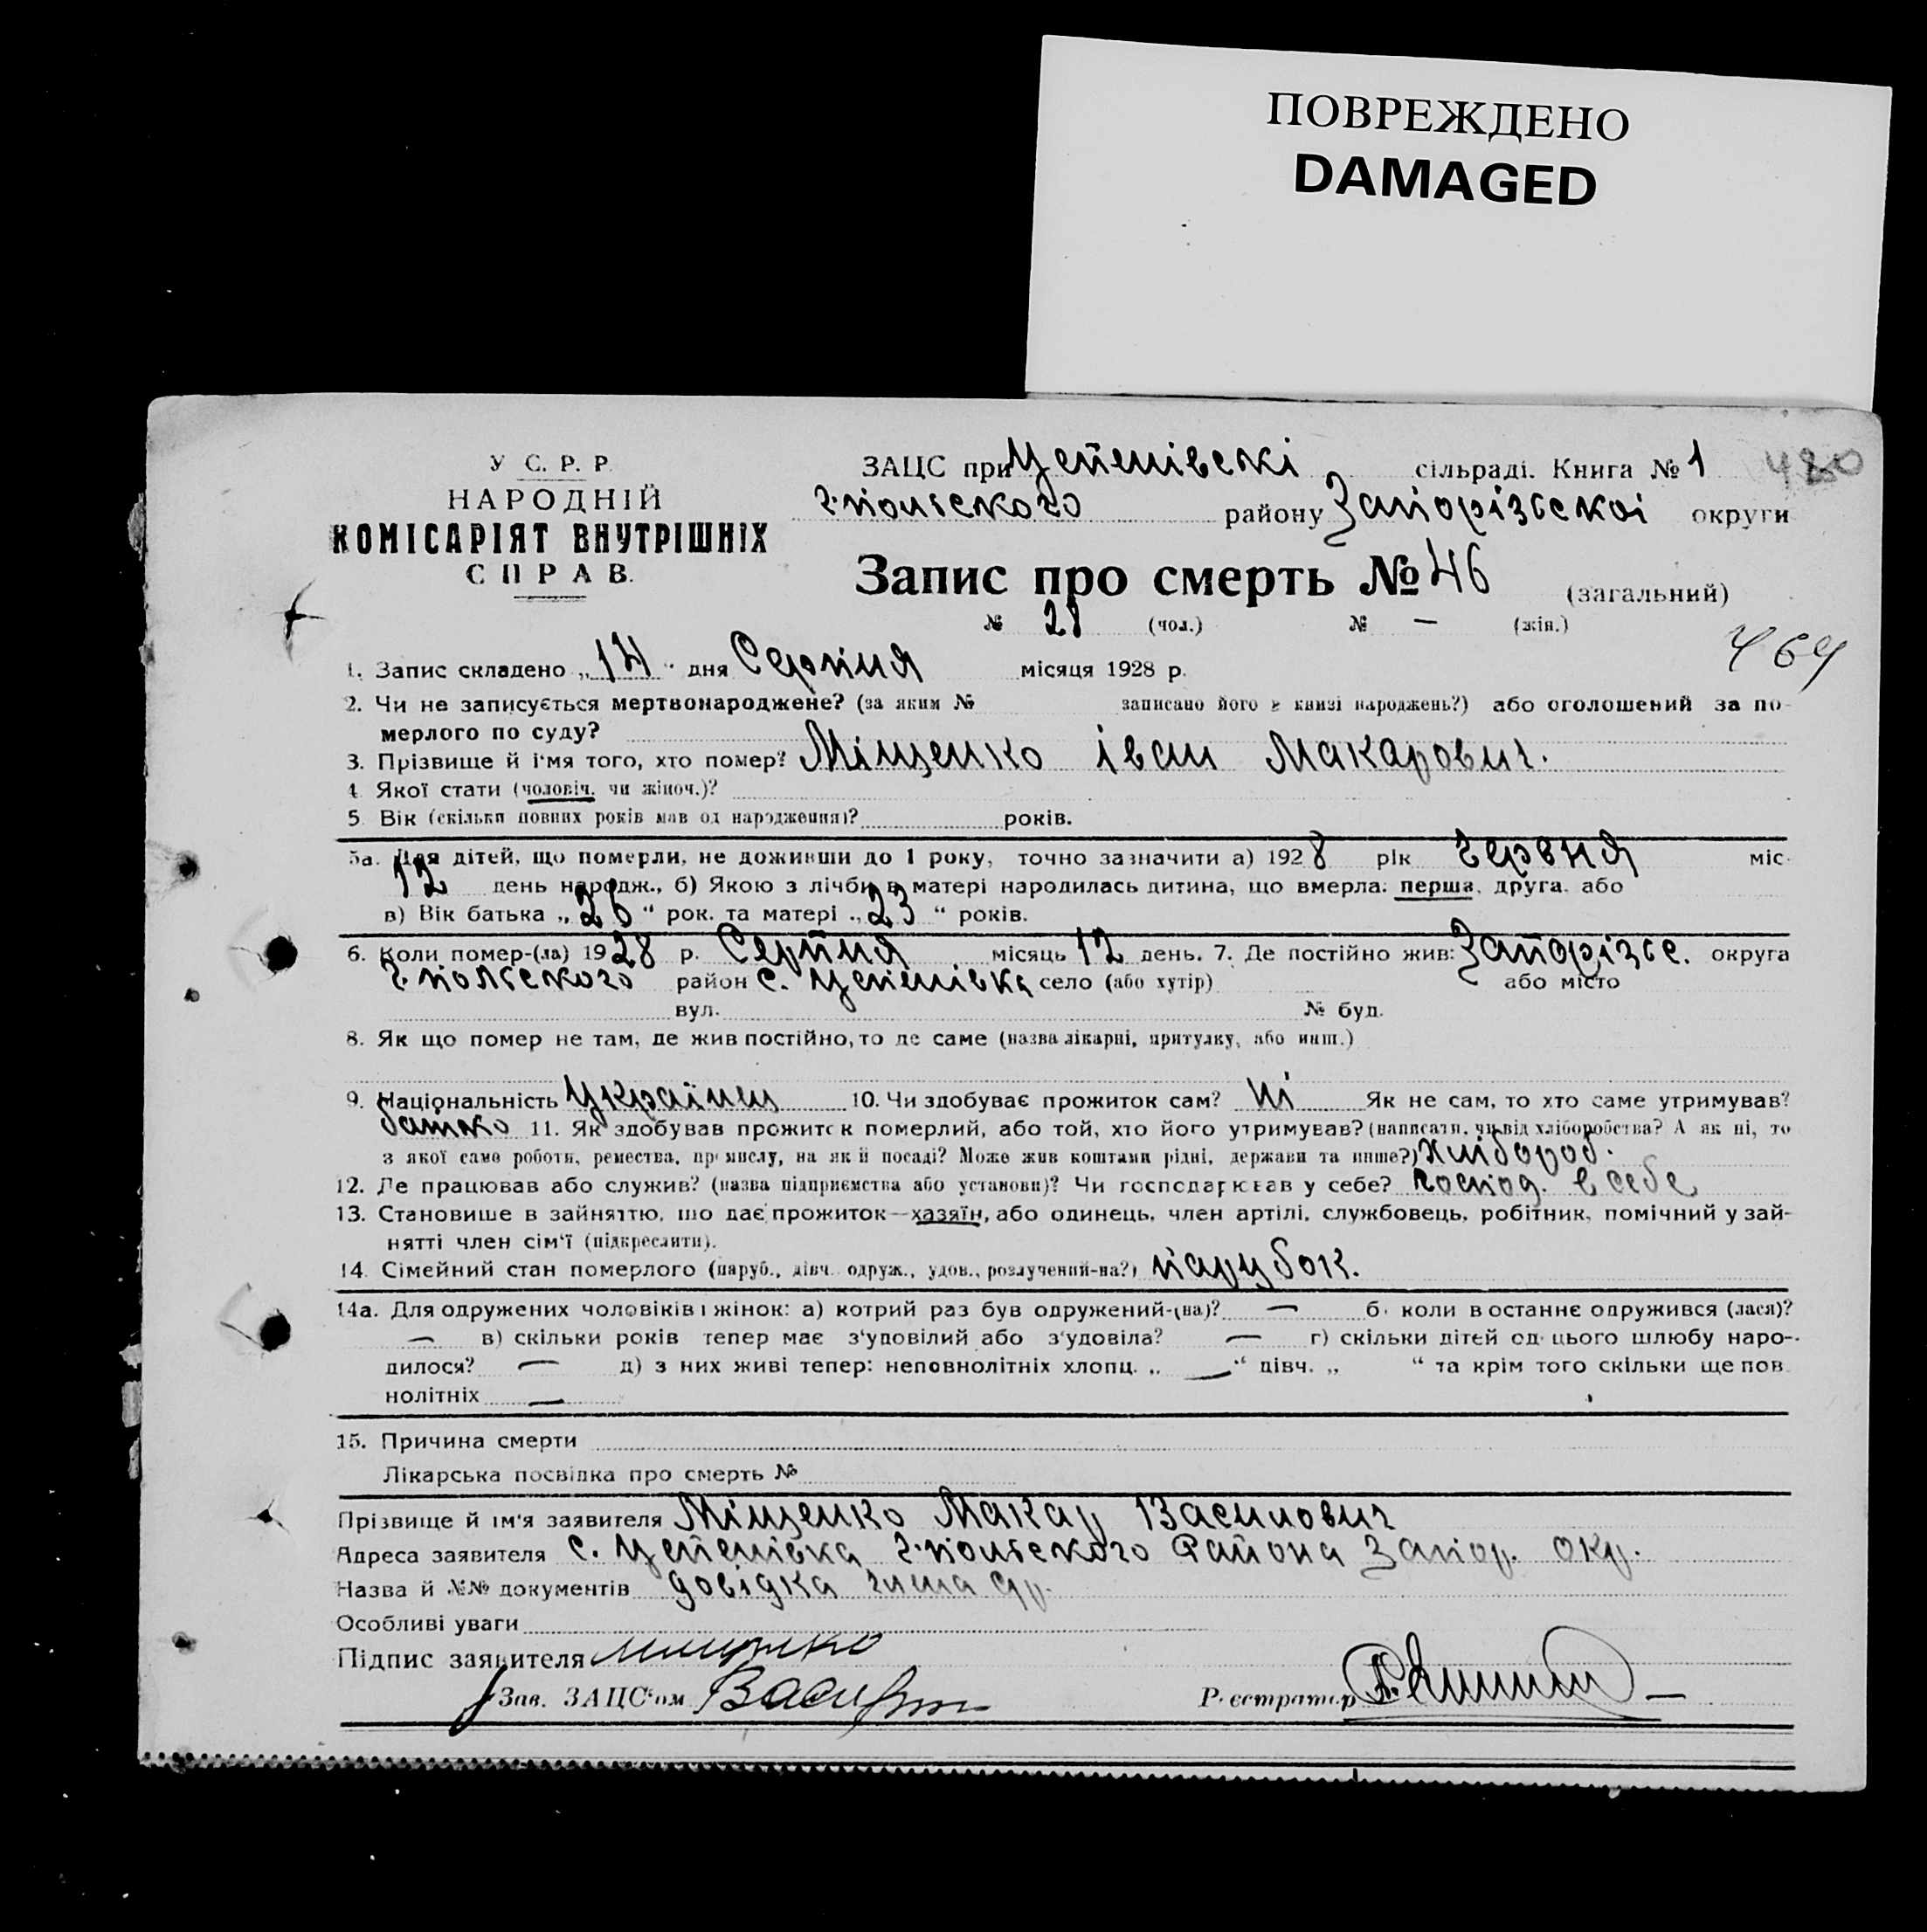 ПОВРЕЖДЕНО
DAMAGED
У С. Р. Р.
НАРОДНІЙ
КОМІСАРІЯТ ВНУТРІШНІХ
СПРАВ.
ЗАЦС при Успенівскі сільраді. Книга № 1 480
г-польского району Запорізьскоі округи
Запис про смерть № 46 (загальний)
№ 28 (чол.) № — (жін.)
464
1. Запис складено „14" дня Серпня місяця 1928 р.
2. Чи не записується мертвонароджене? (за яким № записано його в книзі народжень?) або оголошений за по-
мерлого по суду?
3. Прізвище й ім'я того, хто помер? Міщенко іван Макарович.
4. Якої стати (чоловіч. чи жіноч.)?
5. Вік (скільки повних років мав од народження)? років.
5а. Для дітей, що померли, не доживши до 1 року, точно зазначити а) 1928 рік червня міс-
12 день народж., б) Якою з лічби в матері народилась дитина, що вмерла: перша, друга. або
в) Вік батька „26" рок. та матері „23" років.
6. Коли помер-(ла) 1928 р. Серпня місяць 12 день. 7. Де постійно жив: Запорізьс. округа
г-польского район с. Успенівка село (або хутір) або місто
вул. № буд.
8. Як що помер не там, де жив постійно, то де саме (назва лікарні, притулку, або инш.)
9. Національність Українец 10. Чи здобуває прожиток сам? ні Як не сам, то хто саме утримував?
батько 11. Як здобував прожиток померлий, або той, хто його утримував? (написати, чи від хліборобства? А як ні, то
з якої саме роботи, ремества, промислу, на якій посаді? Може жив коштами рідні, держави та инше?) хлібороб.
12. Де працював або служив? (назва підприємства або установи)? Чи господарював у себе? господ. в себе
13. Становище в зайняттю, що дає прожиток—хазяїн, або одинець, член артілі, службовець, робітник, помічний у зай-
нятті член сім'ї (підкреслити).
14. Сімейний стан померлого (паруб., дівч. одруж., удов., розлучений-на?) парубок.
14а. Для одружених чоловіків і жінок: а) котрий раз був одружений-(на)? — б) коли в останнє одружився (лася)?
— в) скільки років тепер має з'удовілий або з'удовіла? — г) скільки дітей од цього шлюбу наро-
дилося? — д) з них живі тепер: неповнолітніх хлопц. „ — " дівч. „ " та крім того скільки ще пов
нолітніх —
15. Причина смерти
Лікарська посвідка про смерть №
Прізвище й ім'я заявителя Міщенко Макар Василович
Адреса заявителя с. Успенівка г-польского Района Запор. окр.
Назва й №№ документів довідка
Особливі уваги
Підпис заявителя
Зав. ЗАЦС'ом
Реєстратор